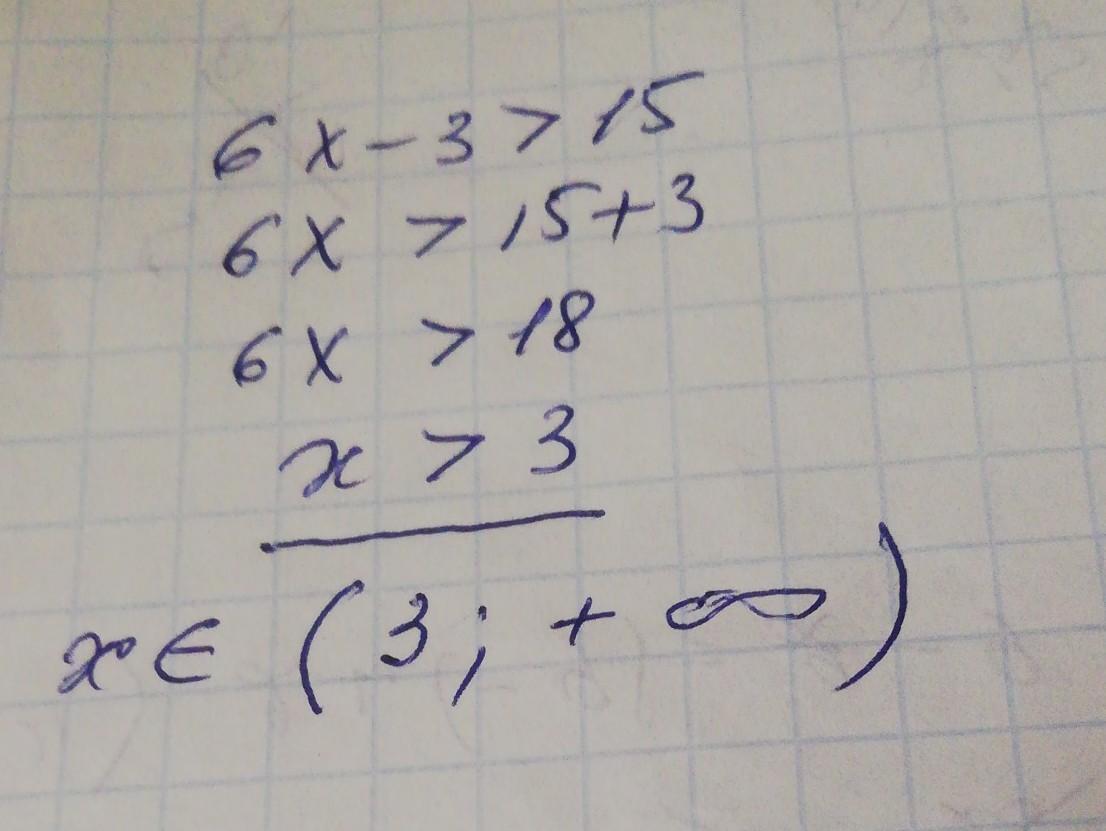 6x-3>15
6x > 15+3
6x > 18
x > 3
x ∈ (3; + ∞)